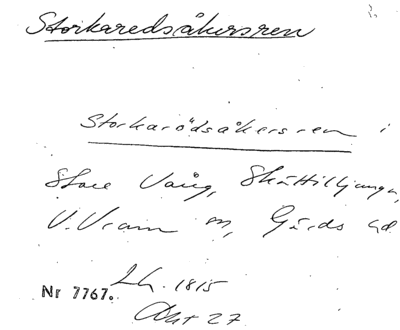 Storkaredsåkersren
Storkarödsåkersren i
Store Vång, Skättilljunga,
V. Vram sn, Gärds hd
Lh. 1815
Nr 7767.
Akt 27